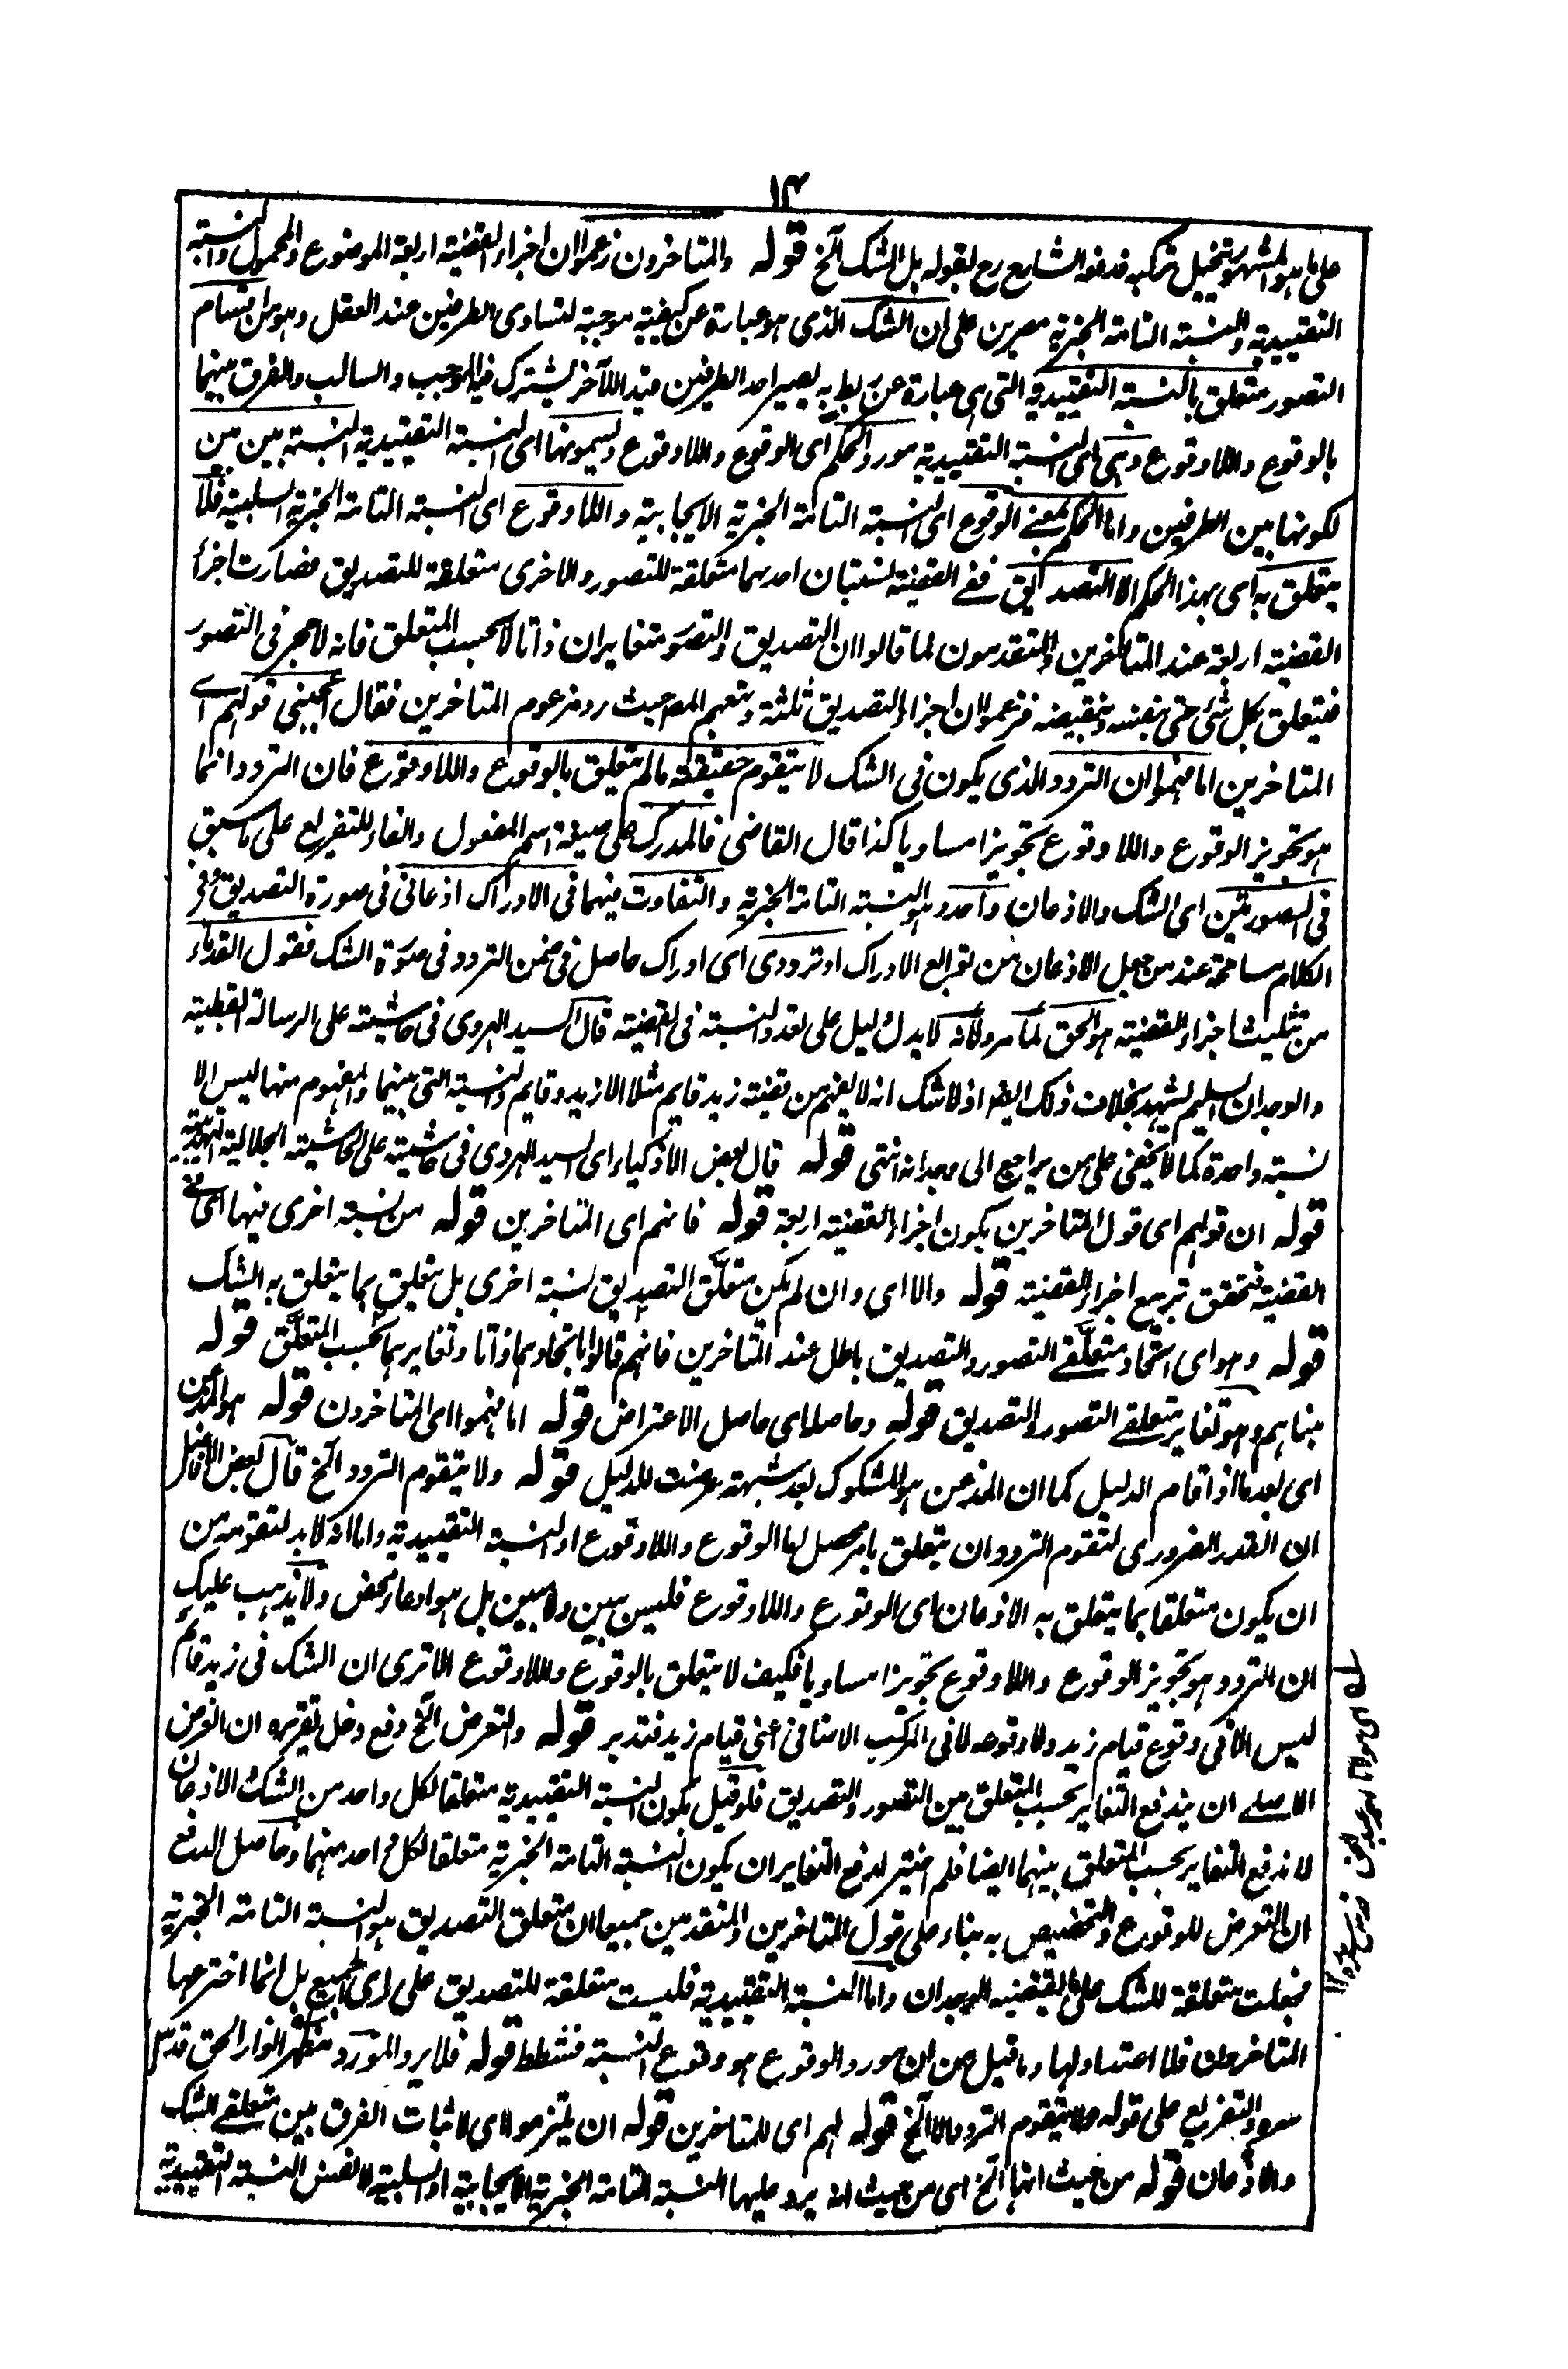 ١٣
على ما هو المشهور يتخيل تركبه فدفعه الشارح رح بقوله بل الشك آلخ قوله والمتاخرون زعموا ان اجزاء القضية اربعة الموضوع والمحمول والنسبة
التقييدية والنسبة التامة الخبرية مصرين على ان الشك الذى هو عبارة عن كيفية موجبة لتساوى الطرفين عند العقل وهو من اقسام
التصور متعلق بالنسبة التقييدية التى هى عبارة عن ربط به يصير احد الطرفين قيدا للآخر يشترك فيه الموجب والسالب والفرق بينهما
بالوقوع واللاوقوع وهى اى النسبة التقييدية مورد الحكم اى الوقوع واللاوقوع ويسمونها اى النسبة التقييدية النسبة بين بين
لكونها بين الطرفين واما الحكم بمعنى الوقوع اى النسبة التامة الخبرية الايجابية واللاوقوع اى النسبة التامة الخبرية السلبية فلا
يتعلق به اى بهذا الحكم الا التصديق ففى القضية نسبتان احدهما متعلقة للتصور والاخرى متعلقة للتصديق فصارت اجزاء
القضية اربعة عند المتاخرين والمتقدمون لما قالوا ان التصديق والتصور متغايران ذاتا لا بحسب المتعلق فانه لا حجر فى التصور
فيتعلق بكل شئ حتى بنفسه ونقيضه فزعموا ان اجزاء التصديق ثلثة وتبعهم المص حيث رد مزعوم المتاخرين فقال اعجبنى قولهم اى
المتاخرين اما فهموا ان التردد الذى يكون فى الشك لا يتقوم حقيقة ما لم يتعلق بالوقوع واللاوقوع فان التردد انما
هو تجويز الوقوع واللاوقوع تجويزا مساويا كذا قال القاضى فالمدرك على صيغة اسم المفعول والفاء للتفريع على ما سبق
فى الصورتين اى الشك والاذعان واحد وهو النسبة التامة الخبرية والتفاوت بينهما فى الادراك اذعانى فى صورة التصديق وفى
الكلام مسامحة عند من جعل الاذعان من توابع الادراك او ترددى اى ادراك حاصل فى ضمن التردد فى صورة الشك فقول القدماء
من تثليث اجزاء القضية هو الحق لما مر ولانه لا يدل دليل على تعدد النسبة فى القضية قال السيد الهروى فى حاشيته على الرسالة القطبية
والوجدان السليم يشهد بخلاف ذلك ايضا اذ لا شك انه لا يفهم من قضية زيد قايم مثلا الا زيد وقايم والنسبة التى بينهما والمفهوم منها ليس الا
نسبة واحدة كما لا يخفى على من يراجع الى وجدانه انتهى قوله قال بعض الاذكياء اى السيد الهروى فى حاشيته على الحاشية الجلالية التهذيبية
قوله ان قولهم اى قول المتاخرين بكون اجزاء القضية اربعة قوله فانهم اى المتاخرين قوله من نسبة اخرى فيها اى فى
القضية فتحقق تربيع اجزاء القضية قوله والا اى وان لم يكن متعلق التصديق نسبة اخرى بل يتعلق بما يتعلق به الشك
قوله وهو اى اتحاد متعلقى التصور والتصديق باطل عند المتاخرين فانهم قالوا باتحادهما ذاتا وتغايرهما بحسب المتعلق قوله
مبناهم وهو تغاير متعلقى التصور والتصديق قوله وحاصله اى حاصل الاعتراض قوله اما فهموا اى المتاخرون قوله هو المذعن
اى بعد ما اذا قام الدليل كما ان المذعن هو المشكوك بعد شبهة عرضت للدليل قوله ولا يتقوم التردد آلخ قال بعض الافاضل
ان القدر الضرورى لتقوم التردد ان يتعلق بامر محصل لها الوقوع واللاوقوع او النسبة التقييدية واما انه لا بد لتقومه من
ان يكون متعلقا بما يتعلق به الاذعان اى الوقوع واللاوقوع فليس ببين ولا مبين بل هو ادعاء محض ولا يذهب عليك
ان التردد هو تجويز الوقوع واللاوقوع تجويزا مساويا فكيف لا يتعلق بالوقوع واللاوقوع الا ترى ان الشك فى زيد قائم
ليس الا فى وقوع قيام زيد ولا وقوعه لا فى المركب الاضافى اعنى قيام زيد فتدبر قوله والتعرض آلخ دفع دخل تقريره ان الغرض
الاصلے ان يندفع التغاير بحسب المتعلق بين التصور والتصديق فلو قيل بكون النسبة التقييدية متعلقا لكل واحد من الشك والاذعان
لاندفع التغاير بحسب المتعلق بينهما ايضا فلم اختير لدفع التغاير ان يكون النسبة التامة الخبرية متعلقا لكل واحد منهما وحاصل الدفع
ان التعرض للوقوع والتخصيص به بناء على قول المتاخرين والمتقدمين جميعا ان متعلق التصديق هو النسبة التامة الخبرية
فجعلت متعلقة للشك على ما يقتضيه الوجدان واما النسبة التقييدية فليست متعلقة للتصديق على راى الجميع بل انما اخترعها
المتاخرون فلا اعتداد لها وما قيل من ان مورد الوقوع هو وقوع النسبة فشطط قوله فلا يرد المورد مظهر انوار الحق قدس
سره والتفريع على قوله ولا يتقوم التردد الا آلخ قوله لهم اى للمتاخرين قوله ان يلتزموا اى لاثبات الفرق بين متعلقى الشك
والاذعان قوله من حيث انها آلخ اى من حيث انه يرد عليها النسبة التامة الخبرية الايجابية او السلبية لا نفس النسبة التقييدية